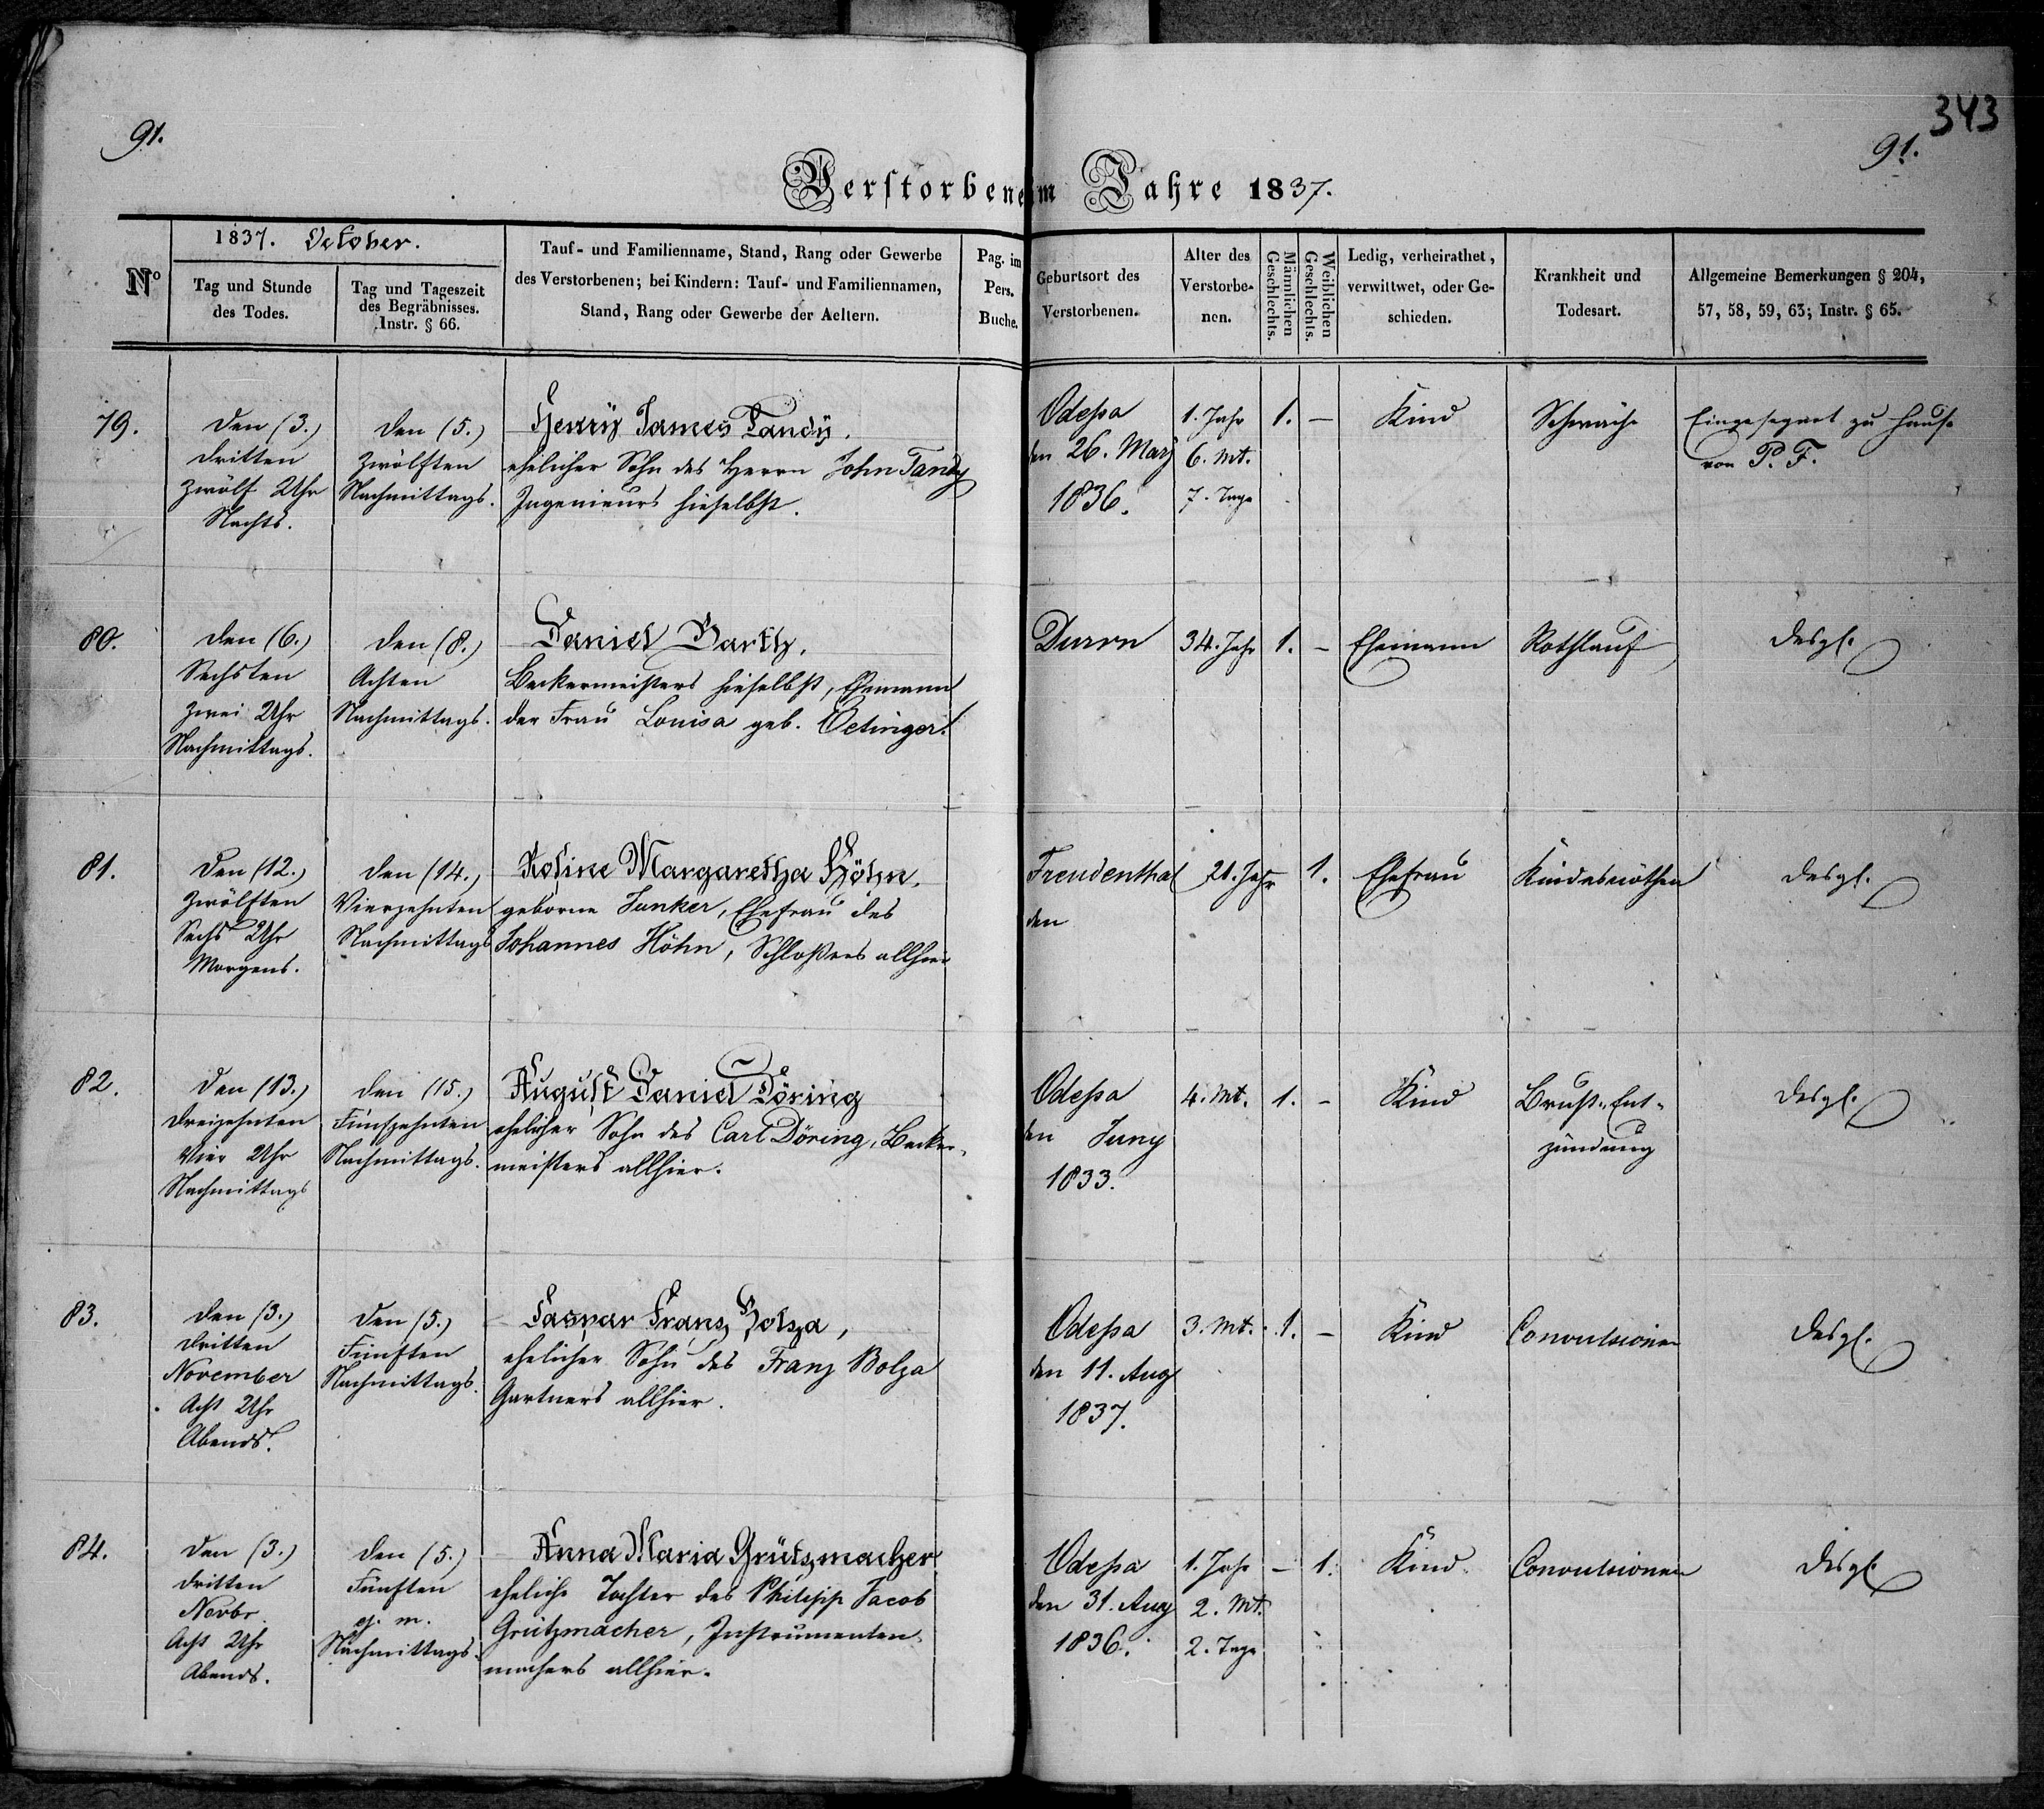 343
91.
91.
Verstorbene im Jahre 1837.
1837. October.
No
Tag und Stunde
des Todes.
Tag und Tageszeit
des Begräbnisses.
Instr. § 66.
Tauf- und Familienname, Stand, Rang oder Gewerbe
des Verstorbenen; bei Kindern: Tauf- und Familiennamen,
Stand, Rang oder Gewerbe der Aeltern.
Pag. im
Pers.
Buche.
Geburtsort des
Verstorbenen.
Alter des
Verstorbe-
nen.
Männlichen
Geschlechts.
Weiblichen
Geschlechts.
Ledig, verheirathet,
verwittwet, oder Ge-
schieden.
Krankheit und
Todesart.
Allgemeine Bemerkungen § 204,
57, 58, 59, 63; Instr. § 65.
79.
Den (3.)
dritten
zwölf Uhr
Nachts.
den (5.)
zwölften
Nachmittags.
Henry James Tandy.
ehelicher Sohn des Herrn John Tandy
Ingenieurs hieselbst.
Odessa
den 26. Marz
1836.
1. Jahr
6. Mt.
7. Tage
1.
–
Kind
Schwäche
Eingesegnet zu Hause
von P. F.
80.
den (6.)
Sechsten
zwei Uhr
Nachmittags.
den (8.)
Achten
Nachmittags.
Daniel Barth.
Beckermeisters hieselbst, Ehemann
der Frau Louisa geb. Oetinger.
Durrn
34. Jahr
1.
–
Ehemann
Rothlauf
desgl.
81.
Den (12.)
zwölften
Sechs Uhr
Morgens.
den (14.)
Vierzehnten
Nachmittags
Rosine Margaretha Höhn.
geborne Junker, Ehefrau des
Johannes Höhn, Schlossers allhier
Freudenthal
den
21. Jahr
1.
Ehefrau
Kindesnöthen
desgl.
82.
Den (13.)
dreizehnten
Vier Uhr
Nachmittags
den (15.)
Fünfzehnten
Nachmittags.
August Daniel Döring
ehelicher Sohn des Carl Döring, Becker-
meisters allhier.
Odessa
den Juny
1833.
4. Mt.
1.
–
Kind
Brust-Ent-
zündung
desgl.
83.
den (3.)
dritten
November
Acht Uhr
Abends.
den (5.)
Fünften
Nachmittags.
Caspar Franz Bolza,
ehelicher Sohn des Franz Bolza
Gartners allhier.
Odessa
den 11. Aug
1837.
3. Mt.
1.
–
Kind
Convulsionen
desgl.
84.
den (3.)
dritten
Novbr.
Acht Uhr
Abends.
den (5.)
Fünften
ej. m.
Nachmittags.
Anna Maria Grützmacher
eheliche Tochter des Philipp Jacob
Grützmacher, Instrumenten-
machers allhier.
Odessa
den 31. Aug
1836.
1. Jahr
2. Mt.
2. Tage
–
1.
Kind
Convulsionen
desgl.